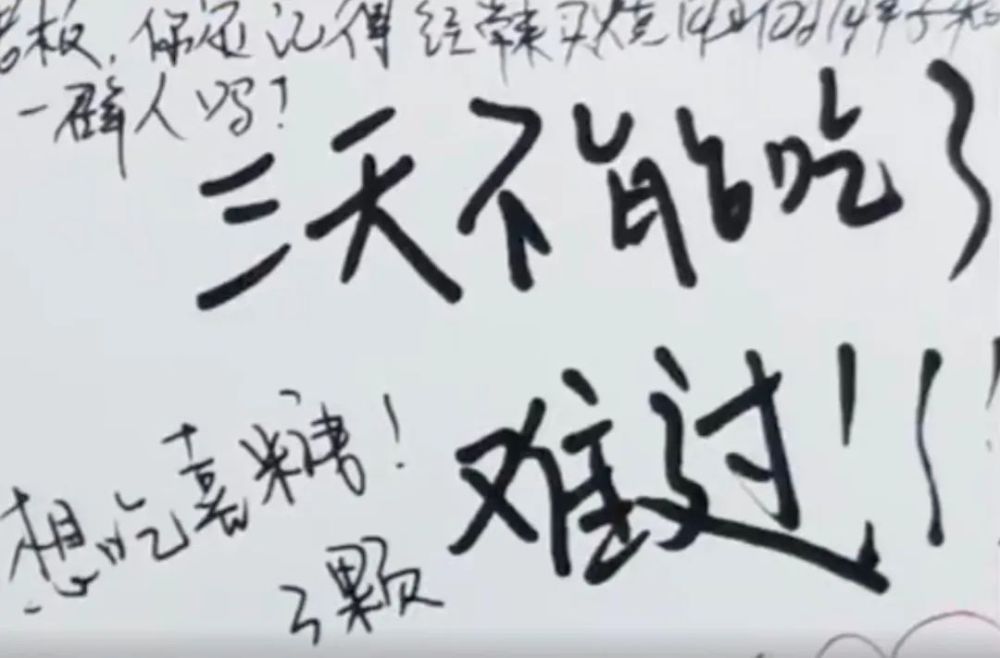 老板，你还记得经常来买
一群人吗！
三天不能吃了
难过！！！
想吃喜糖！
3颗